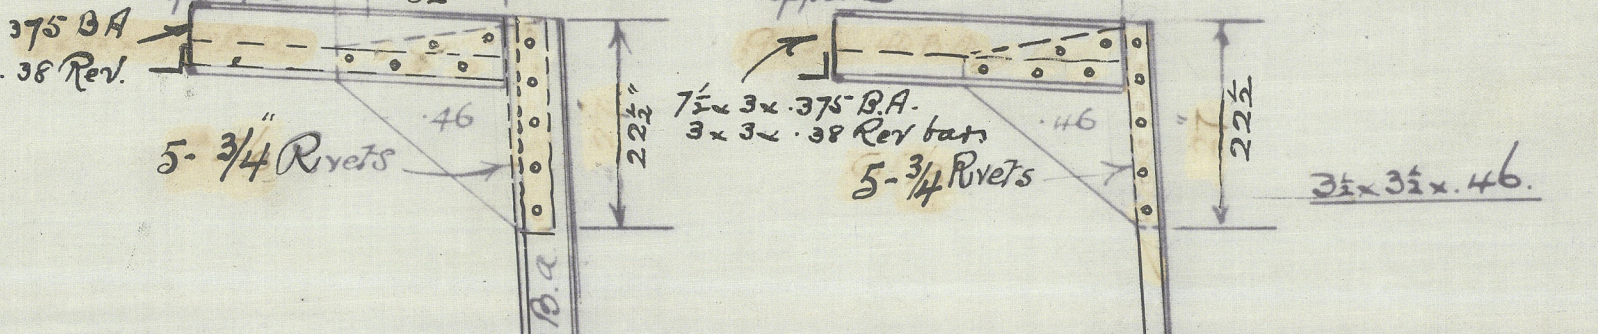 375 B A
. 38 Rev.
.46
5- 3/4" Rivets
22½"
B.a
7½ x 3 x .375 B.A.
3 x 3 x .38 Rev bars
.46
5- 3/4 Rivets
22½
3½ x 3½ x .46.